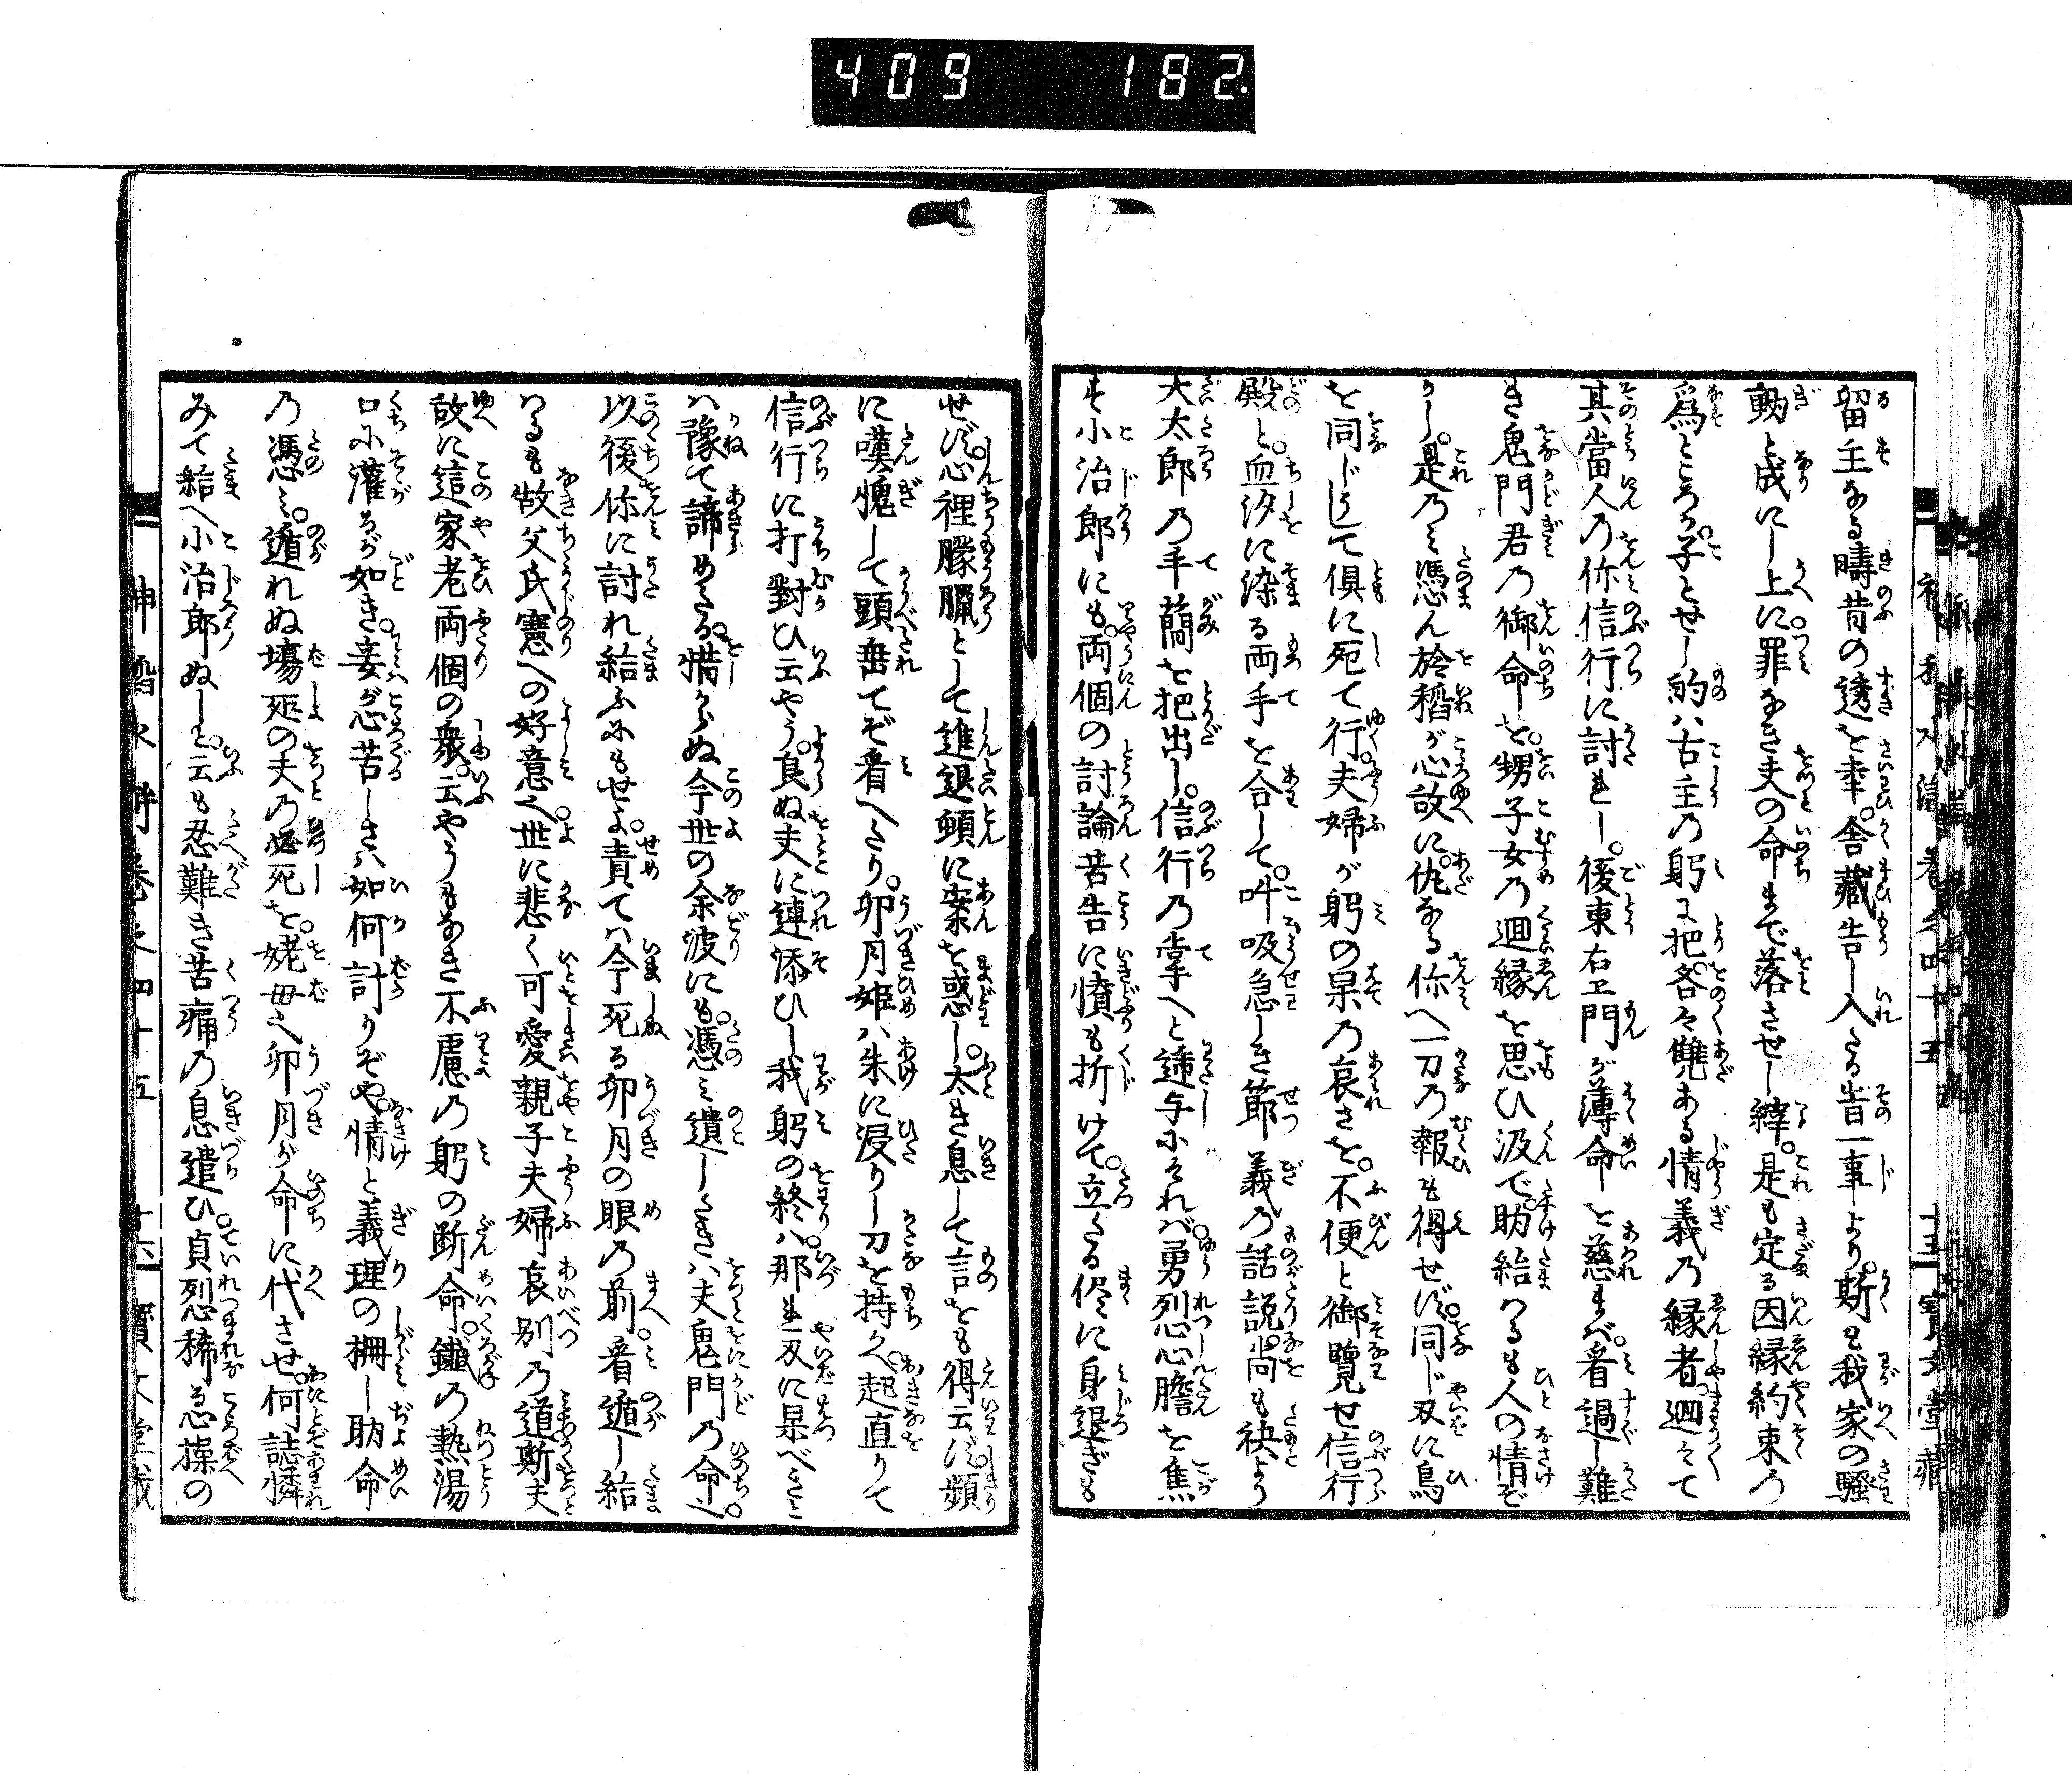 409 182.
留主なる疇昔の透を幸。舎藏告し入たる皆一事より。斯も我家の騒
動と成にし上に。罪なき夫の命まで落させし縡。是も定る因縁約束の
為ところか。子とせし的ハ古主の躬に把。各々讐ある情義乃縁者。廻々て
其當人の你信行に討れし。後東右エ門が薄命を慈まば。看過し難
き鬼門君乃御命を。甥子女乃廻縁を思ひ汲で。助給へるも人の情ぞ
かし。是のミ憑ん於稲が心故に。仇なる你へ一刀乃報も得せず。同じ刄に鳥
を同じうして倶に死て行。夫婦が躬の果乃哀さを。不便と御覧せ信行
殿と。血汐に染る両手を合して。叶吸急しき節義乃話説。尚も袂より
大太郎乃手簡を把出し。信行乃掌へと逓与にそれバ。勇烈心膽を焦
す小治郎にも。両個の討論苦告に憤も折けて。立たる侭に身退ぎも
せず。心裡朦朧として進退頓に案を惑し。太き息して言をも得云ず。頻
に嘆愧して頭垂てぞ看へたり。卯月姫ハ朱に浸りし刀を持かへ。起直りて
信行に打對ひ云やう。良ぬ夫に連添ひし我躬の終ハ。那れ刄に果べきと
ハ豫て諦めたる。惜からぬ今世の余波にも。憑ミ遺したきハ夫鬼門乃命へ。
以後你に討れ給ふにもせよ。責てハ今死る卯月の眼乃前。看遁し給
へるも故父氏憲への好意へ。世に悲く可愛親子夫婦哀別乃道。斯夫
故に這家老両個の衆。云やうもなき不慮乃躬の断命。鐵の熱湯
口に灌るが如き。妾が心苦しさハ如何計りぞや。情と義理の柵し助命
乃憑ミ。遁れぬ場所の夫乃必死を。姥母へ卯月が命に代させ。何誌憐
みて給へ小治郎ぬしと。云も忍難き苦痛乃息遣ひ。貞烈稀なる操の
巻之四十五 十六 寳文堂藏